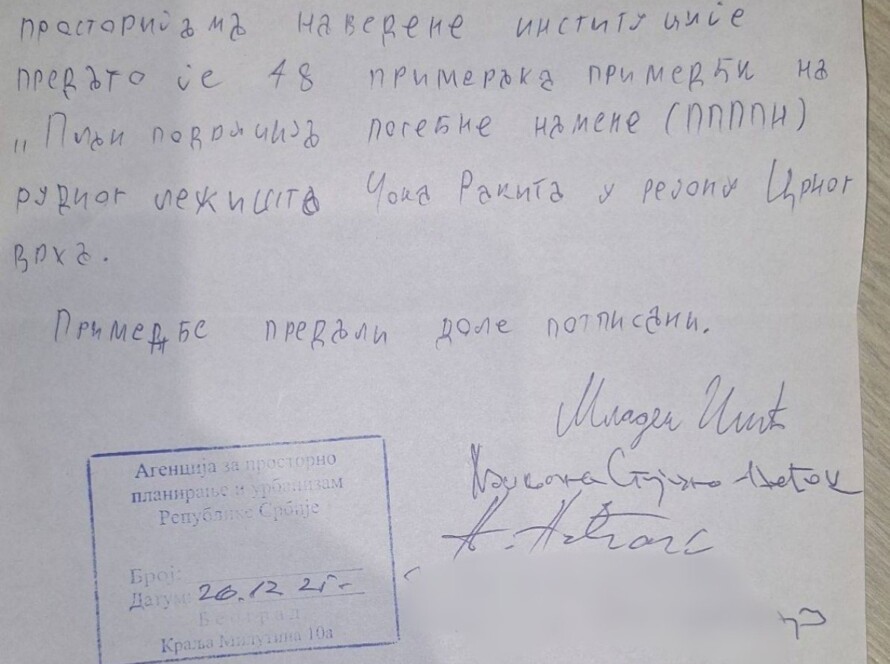 просторијама наведене институције
предато је 48 примерака примедби на
„План подручја посебне намене (ПППPН)
рудног лежишта Чока Ракита у рејону Црног
врха.
Примедбе предали доле потписани.
Младен
Агенција за просторно
планирање и урбанизам
Републике Србије
Број:
Датум: 26.12 25.
Београд
Краља Милутина 10а